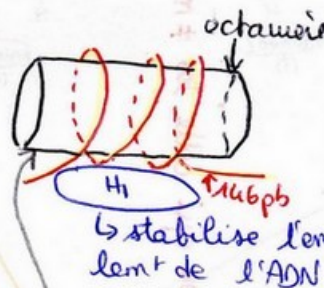 octamère
H1
146pb
↳ stabilise l'en
lemt de l'ADN